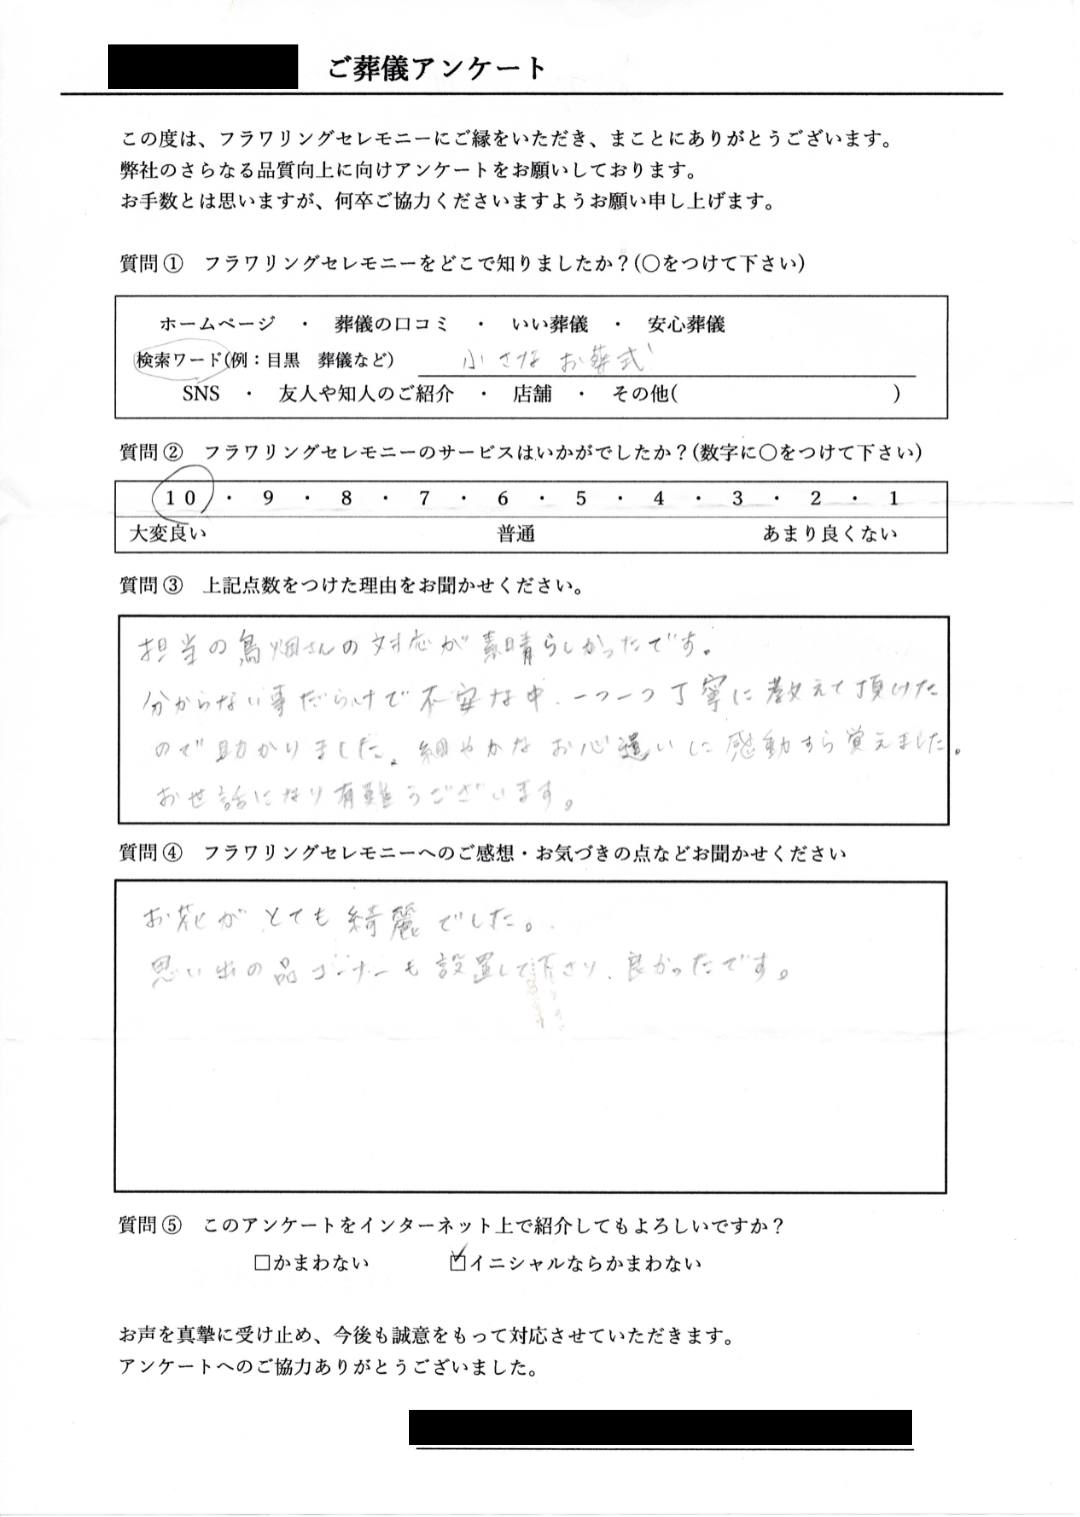 ご葬儀アンケート
この度は、フラワリングセレモニーにご縁をいただき、まことにありがとうございます。
弊社のさらなる品質向上に向けアンケートをお願いしております。
お手数とは思いますが、何卒ご協力くださいますようお願い申し上げます。
質問① フラワリングセレモニーをどこで知りましたか？(〇をつけて下さい)
ホームページ ・ 葬儀の口コミ ・ いい葬儀 ・ 安心葬儀
検索ワード(例：目黒 葬儀など) 小さなお葬式
SNS ・ 友人や知人のご紹介 ・ 店舗 ・ その他( )
質問② フラワリングセレモニーのサービスはいかがでしたか？(数字に〇をつけて下さい)
10 ・ 9 ・ 8 ・ 7 ・ 6 ・ 5 ・ 4 ・ 3 ・ 2 ・ 1
大変良い 普通 あまり良くない
質問③ 上記点数をつけた理由をお聞かせください。
担当の鳥畑さんの対応が素晴らしかったです。
分からない事だらけで不安な中、一つ一つ丁寧に教えて頂けた
ので助かりました。細やかなお心遣いに感動すら覚えました。
お世話になり有難うございます。
質問④ フラワリングセレモニーへのご感想・お気づきの点などお聞かせください
お花がとても綺麗でした。
思い出の品コーナーも設置して下さり、良かったです。
質問⑤ このアンケートをインターネット上で紹介してもよろしいですか？
□かまわない ☑イニシャルならかまわない
お声を真摯に受け止め、今後も誠意をもって対応させていただきます。
アンケートへのご協力ありがとうございました。